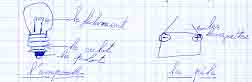 le filament
le culot
le plots
L'ampoule
les
La pile